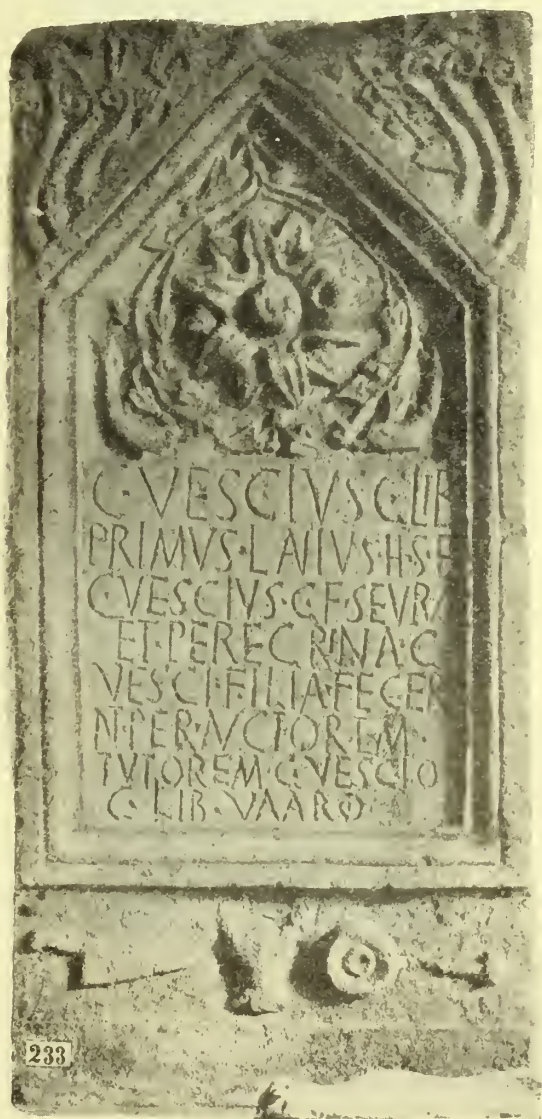 C·VESCIVS·C·LIB
PRIMVS·LAIIVS·H·S·E
C·VESCIVS·C·F·SEVRA
ET·PEREGRINA·C
VESCI·FILIA·FECER
N·PER·AVCTOREM·
TVTOREM·C·VESCIO
C·LIB·VAARO
233